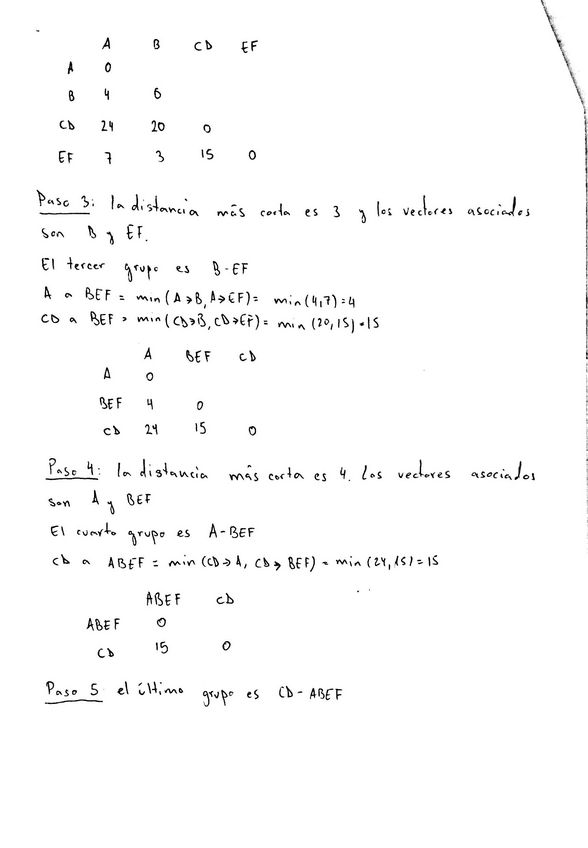 A B CD EF
A 0
B 4 6
CD 24 20 0
EF 7 3 15 0
Paso 3: la distancia más corta es 3 y los vectores asociados
son B y EF.
El tercer grupo es B-EF
A a BEF = min(A→B, A→EF) = min(4,7) = 4
CD a BEF = min(CD→B, CD→EF) = min(20,15) = 15
A BEF CD
A 0
BEF 4 0
CD 24 15 0
Paso 4: la distancia más corta es 4. Los vectores asociados
son A y BEF
El cuarto grupo es A-BEF
CD a ABEF = min(CD→A, CD→BEF) = min(24,15) = 15
ABEF CD
ABEF 0
CD 15 0
Paso 5 el último grupo es CD-ABEF